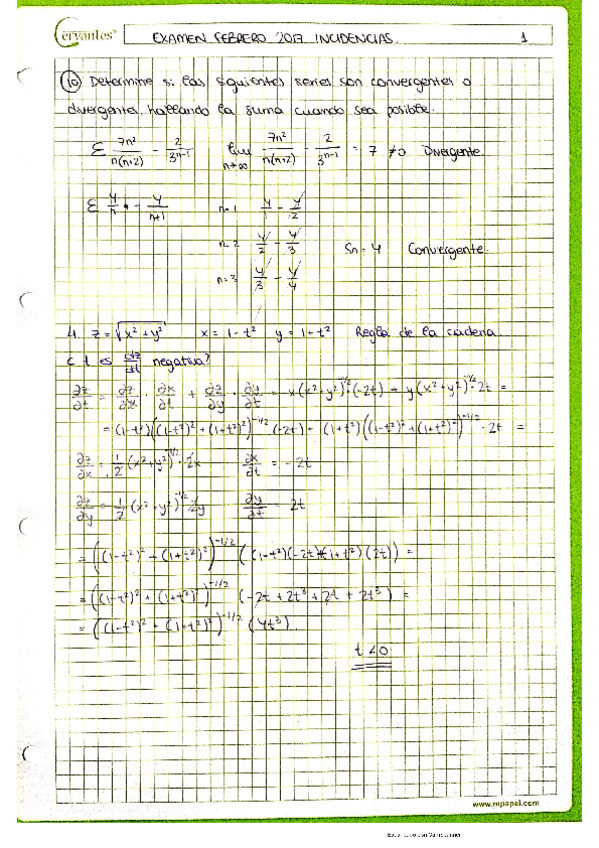 Cervantes
EXAMEN FEBRERO 2017 INCIDENCIAS. 1
10 Determine si las siguientes series son convergentes o
divergentes, hallando la suma cuando sea posible.
Σ 7n²/n(n+2) - 2/3ⁿ⁻¹ lim n→∞ 7n²/n(n+2) - 2/3ⁿ⁻¹ = 7 ≠0 Divergente.
Σ 4/n - 4/n+1 n=1 4/1 - 4/2
n=2 4/2 - 4/3 Sn = 4 Convergente.
n=3 4/3 - 4/4
4. z = √x²+y² x = 1-t² y = 1+t² Regla de la cadena.
¿ t es dz/dt negativa?
∂z/∂t = ∂z/∂x · ∂x/∂t + ∂z/∂y · ∂y/∂t = x(x²+y²)^-1/2 (-2t) + y(x²+y²)^-1/2 2t =
= (1-t²)((1-t²)²+(1+t²)²)^-1/2 (-2t) + (1+t²)((1-t²)²+(1+t²)²)^-1/2 · 2t =
∂z/∂x = 1/2 (x²+y²)^-1/2 · 2x ∂x/∂t = -2t
∂z/∂y = 1/2 (x²+y²)^-1/2 2y ∂y/∂t = 2t
= ((1-t²)² + (1+t²)²)^-1/2 ((1-t²)(-2t)+(1+t²)(2t)) =
= ((1-t²)² + (1+t²)²)^-1/2 (-2t+2t³+2t+2t³) =
= ((1-t²)² + (1+t²)²)^-1/2 (4t³).
t<0
www.mpapel.com